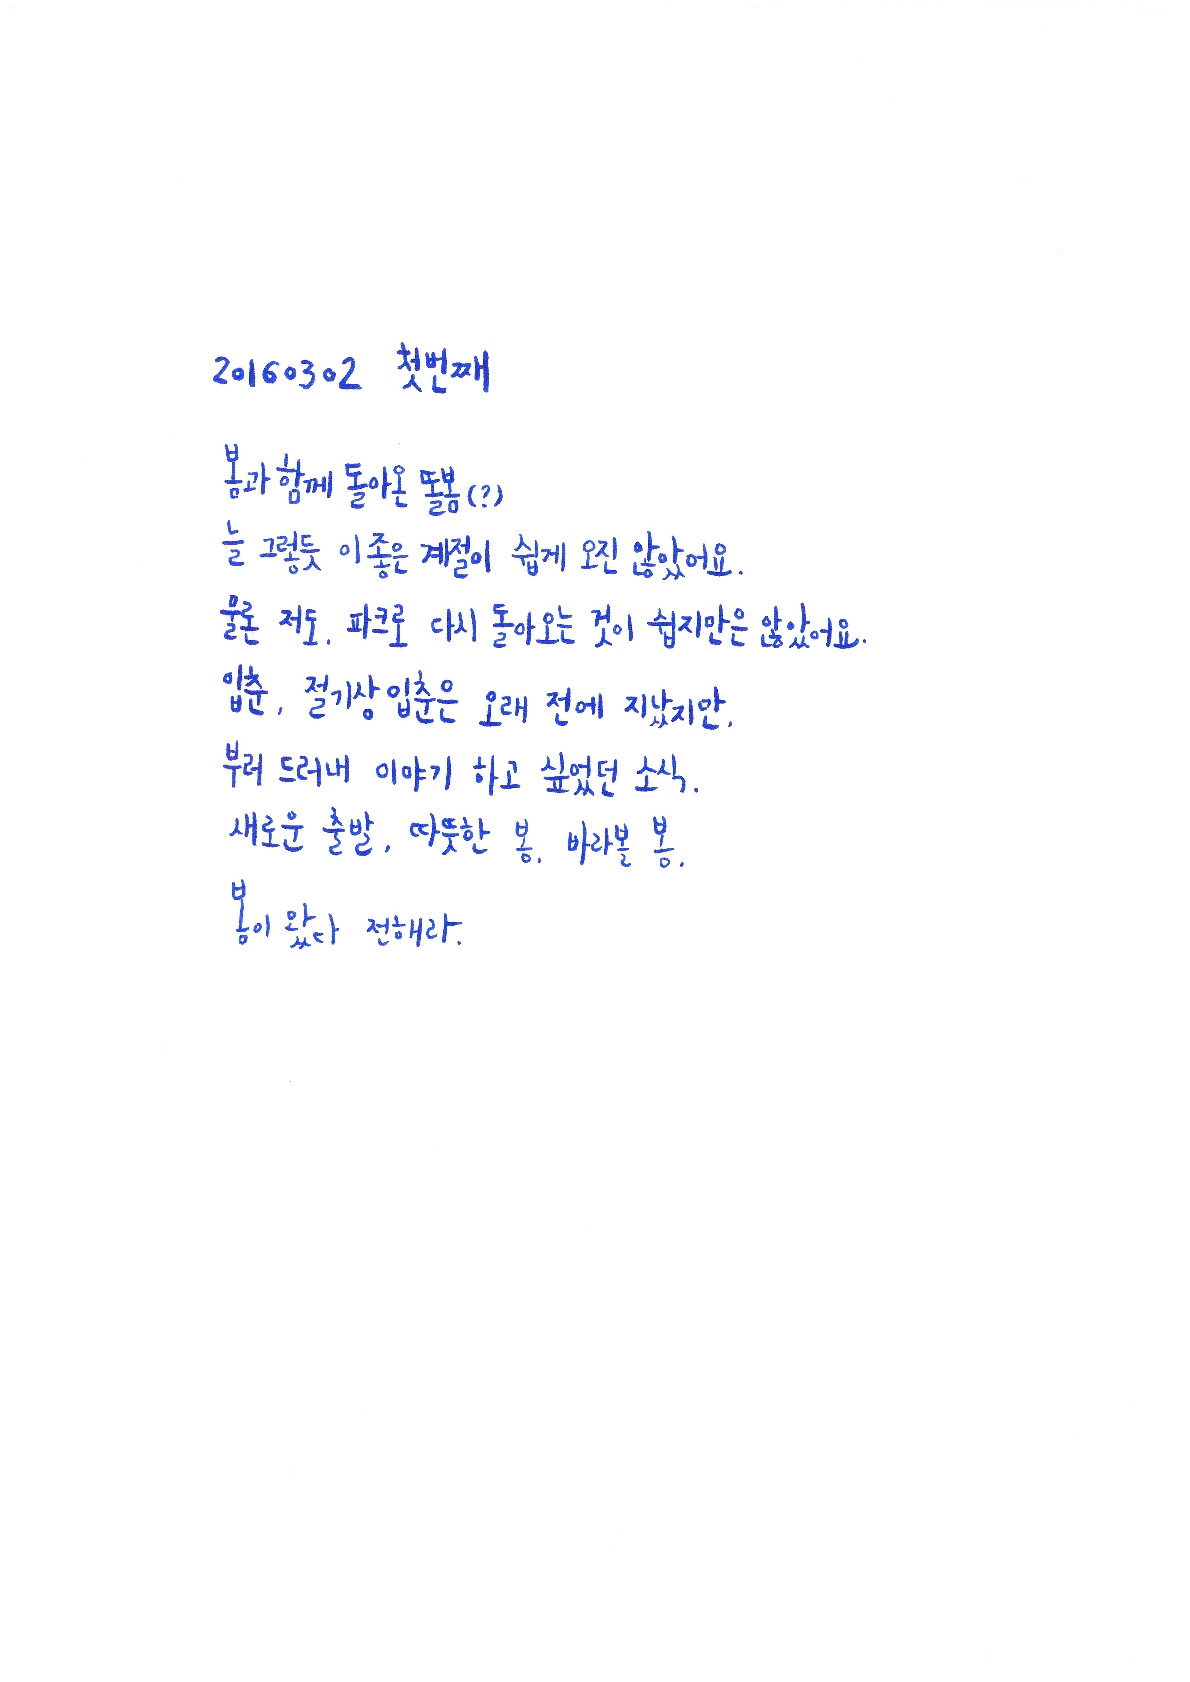 20160302 첫번째
봄과 함께 돌아온 똘봄(?)
늘 그렇듯 이 좋은 계절이 쉽게 오진 않았어요.
물론 저도, 파크로 다시 돌아오는 것이 쉽지만은 않았어요.
입춘, 절기상 입춘은 오래 전에 지났지만,
부러 드러내 이야기 하고 싶었던 소식.
새로운 출발, 따뜻한 봄, 바라볼 봄.
봄이 왔다 전해라.